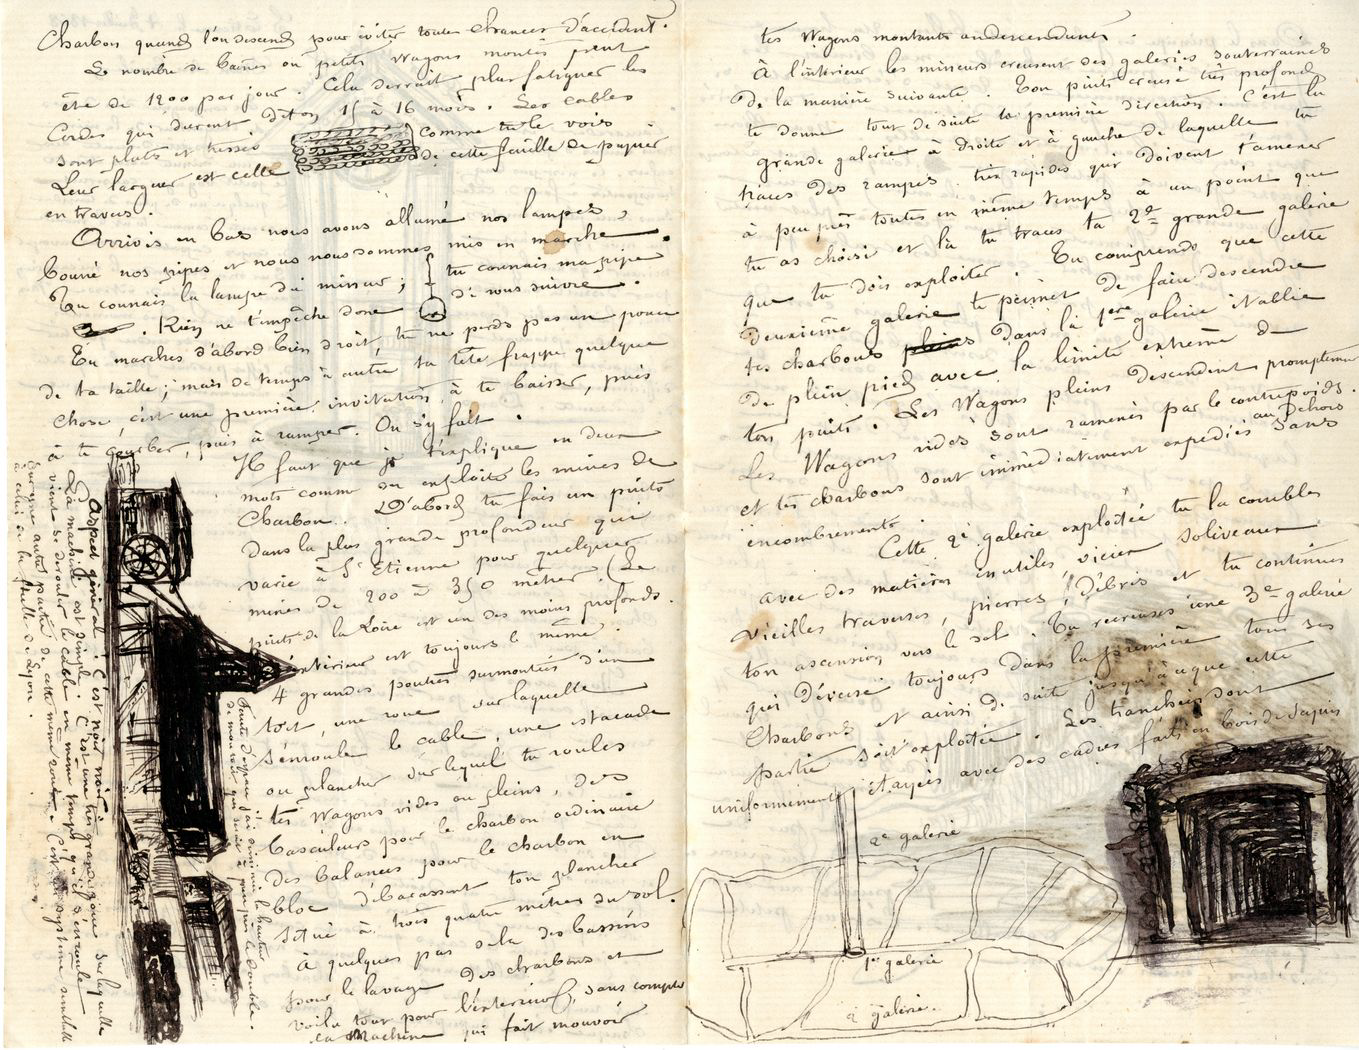 Charbon quand l'on descend pour éviter toutes chances d'accident.
Le nombre de baines ou petits Wagons montés peut
être de 1200 par jour. Cela devrait plus fatiguer les
Cordes qui durent dit on 15 à 16 mois. Les cables
sont plats et tissés comme tu le vois
Leur largeur est celle de cette feuille de papier
en travers.
Arrivés en bas nous avons allumé nos lampes,
bourré nos pipes et nous nous sommes mis en marche.
Tu connais la lampe du mineur; tu connais ma pipe
. Rien ne t'empêche donc de nous suivre.
Tu marches d'abord bien droit, tu ne perds pas un pouce
de ta taille; mais de temps à autre ta tête frappe quelque
chose, c'est une première invitation à te baisser, puis
à te courber, puis à ramper. On s'y fait.
Il faut que je t'explique en deux
mots comme on exploite les mines de
Charbon. D'abord tu fais un puits
dans la plus grande profondeur qui
varie à St Etienne pour quelques
mines de 200 à 350 mètres. (Le
puits de la Loire est un des moins profonds.
intérieur est toujours le même.
4 grandes poutres surmontées d'un
toit, une roue sur laquelle
s'enroule le cable, une estacade
ou plancher sur lequel tu roules
tes Wagons vides ou pleins, des
basculeurs pour le charbon ordinaire
des balances pour le charbon en
bloc débarassant ton plancher
situé à trois quatre mètres du sol.
à quelques pas de là des bassins
pour le lavage des charbons et
voila tout pour l'extérieur, sans compter
la Machine qui fait mouvoir
Aspect général. C'est noir noir
La machine est simple. C'est une très grande roue sur laquelle
vient se dérouler le cable en même temps qu'il s'enroule
sur une autre partie de cette même roue. C'est un système semblable
à celui de la ficelle de Lyon.
tes Wagons montants ou descendants.
À l'intérieur les mineurs creusent des galeries souterraines
de la manière suivante. Ton puits creusé très profond
te donne tout de suite ta première direction. C'est la
grande galerie à droite et à gauche de laquelle tu
traces des rampes très rapides qui doivent t'amener
à peu près toutes en même temps à un point que
tu as choisi et là tu traces ta 2e grande galerie
que tu dois exploiter. Tu comprends que cette
deuxième galerie te permet de faire descendre
tes charbons dans la 1ere galerie établie
de plein pied avec la limite extrême de
ton puits. Les Wagons pleins descendent promptement
Les Wagons vides sont ramenés par le contrepoids.
et tes charbons sont immédiatement expédiés au dehors sans
encombrements
Cette 2e galerie exploitée tu la combles
avec des matières inutiles, vieux soliveaux
vieilles traverses, pierres, débris et tu continues
ton ascension vers le sol. Tu recreuses une 3e galerie
qui déverse toujours dans la première tous ses
Charbons et ainsi de suite jusqu'à ce que cette
partie soit exploitée. Les tranchées sont
uniformément étayées avec des cadres faits en bois de Sapin
2e galerie
1ere galerie
2e galerie.